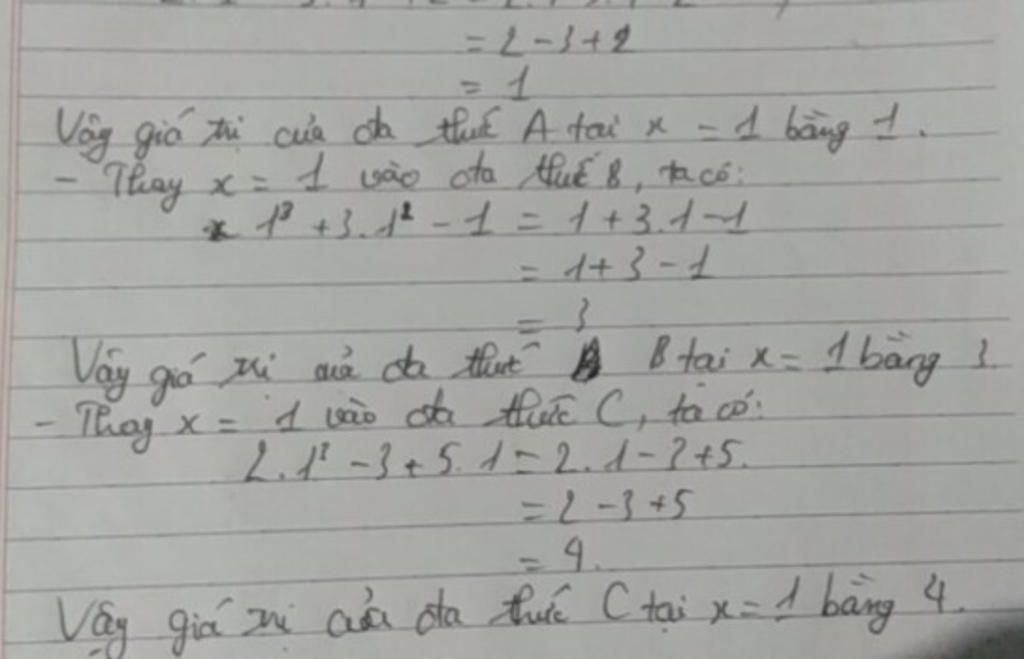 = 2 - 3 + 2
= 1
Vậy giá trị của đa thức A tại x = 1 bằng 1.
- Thay x = 1 vào đa thức B, ta có:
1³ + 3.1² - 1 = 1 + 3.1 - 1
= 1 + 3 - 1
= 3
Vậy giá trị của đa thức B tại x = 1 bằng 3
- Thay x = 1 vào đa thức C, ta có:
2.1² - 3 + 5.1 = 2.1 - 3 + 5.
= 2 - 3 + 5
= 4.
Vậy giá trị của đa thức C tại x = 1 bằng 4.